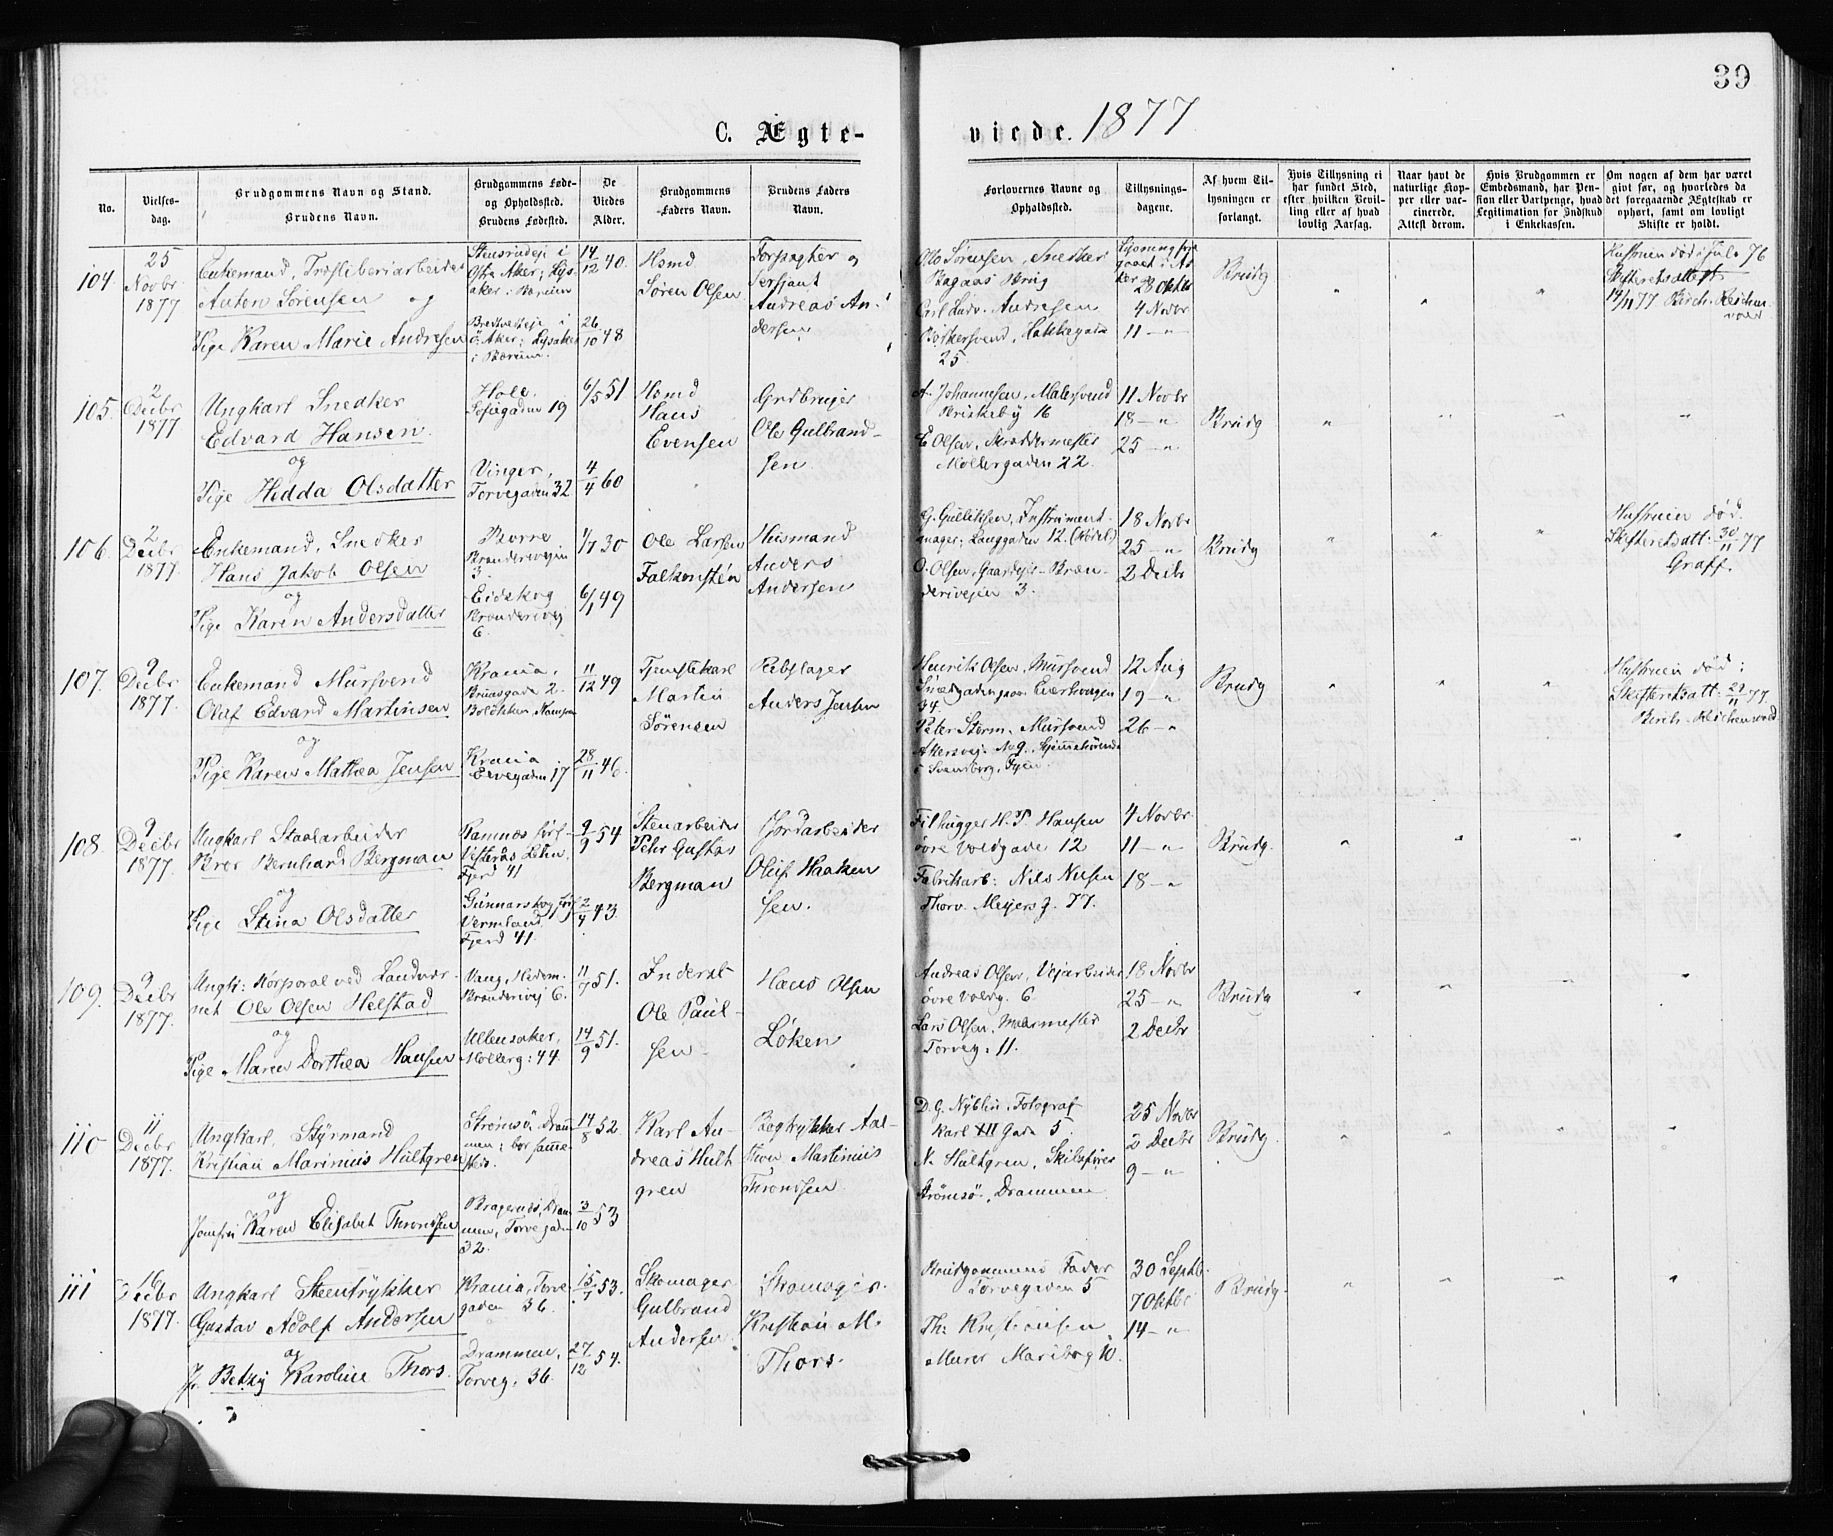 39
C. Ægte-
viede. 1877
No.
Vielses-
dag.
Brudgommens Navn og Stand.
Brudens Navn.
Brudgommens Føde-
og Opholdssted.
Brudens Fødested.
De
Viedes
Alder.
Brudgommens
Faders Navn.
Brudens Faders
Navn.
Forlovernes Navne og
Opholdssted.
Tillysnings-
dagene.
Af hvem Til-
lysningen er
forlangt.
Hvis Tillysning ei
har fundet Sted,
efter hvilken Bevil-
ling eller af hvad
lovlig Aarsag.
Naar havt de
naturlige Kop-
per eller vac-
cinerede.
Attest derom.
Hvis Brudgommen er
Embedsmand, har Pen-
sion eller Vartpenge, hvad
Legitimation for Indskud
i Enkekassen.
Om nogen af dem har været
gift før, og hvorledes da
det foregaaende Ægteskab er
ophørt, samt om lovligt
Skifte er holdt.
104.
25
Novbr
1877
Enkemand,
Anton Sørensen og
Pige Karen Marie Andresen
i
Ø. Aker; Lysaker
i Bærum.
14/12 40.
26/10 48
Hsmd
Søren Olsen
og
Sersjant
Andreas An-
dersen
Ole Sørensen, Snedker
Carl Ludv. Andresen
25
28 Oktbr
4 Novbr
11 - "
Brudg
Hustruen død i Juli 76
14/11 77
105.
2
Decbr
1877
Ungkarl Snedker
Edvard Hansen.
og
Pige Hedda Olsdatter
Hole.
19
Vinger,
Torvegaden 32
6/5 51
4/4 60
Hsmd
Hans
Evensen
Grdbruger
Ole Gulbrand-
sen
A. Johannesen, Malersvend
Briskeby 16
E Olsen, Skræddermester
Møllergaden 22.
11 Novbr
18 - "
25 - "
Brudg
106.
2
Decbr
1877.
Enkemand, Snedker
Hans Jakob Olsen
og
Pige Karen Andersdatter
Borre
Brænderivejen
3.
Eidskog
Brænderivej
6.
1/7 30
6/1 49
Ole Larsen
Falkensten
Husmand
Anders
Andersen
G. Gulliksen, Instrument-
mager; Langgaden 12.
O. Olsen, Gaardejer - Bræn-
derivejen 3.
18 Novbr
25 - "
2 Decbr
Brudg
Hustruen død.
Skifteretsatt. 30/11 77
Graff.
107.
9
Decbr
1877.
Enkemand Mursvend
Olaf Edvard Martinsen
og
Pige Karen Mathea Jensen
Krania,
Brusgade 2.
Krania
17
11/12 49
28/11 46.
Tjenestekarl
Martin
Sørensen
Rebslager
Anders Jensen
Henrik Olsen, Mursvend
34.
Peter Storm, Mursvend
Akersvej. No 9.
i Svenborg, Fyen.
12 Aug
19 - "
26 - "
Brudg
Hustruen død;
Skifteretsatt: 29/11 77.
108.
9
Decbr
1877.
Ungkarl Staalarbeider
Bror Bernhard Bergman
og
Pige Stina Olsdatter
Ramnæs
Vesterås Lehn,
Fjerd 41
Gunnarskog
Vermland
Fjerd 41.
9/9 54
2/4 43.
Stenarbeider
Pehr Gustaf
Bergman
Jordarbeider
Oluf Haaken
sen.
Filhugger H. P. Hansen
øvre Voldgade 12
Fabrikarb: Nils Nilsen
Thorv. Meyers g. 77.
4 Novbr.
11 - "
18 - "
Brudg.
109.
9
Decbr
1877.
Ungk: Korporal ved Landvær-
net Ole Olsen Helstad
og
Pige Maren Dorthea Hansen
Vang, Hedem.
Brænderivej 6.
Ullensaker,
Møllerg: 44.
11/7 51.
14/9 51.
Inderst
Ole Paul-
sen.
Hans Olsen
Løken
Andreas Olsen, Vejarbeider
øvre Voldg. 6
Lars Olsen, Malermester
Torveg: 11.
18 Novbr
25 - "
2 Decbr
Brudg
110
11
Decbr
1877.
Ungkarl, Styrmand
Kristian Marinius Hultgren
og
Jomfru Karen Elisabet Throndsen
Strømsø, Dram
men; bor samme-
steds.
Bragernæs, Dram
men, Torvegaden
32.
14/8 52
3/10 53
Karl An-
dreas Hult
gren
Bogtrykker
Martinius
Throndsen
D. G. Nyblin, Fotograf
Karl XII Gade 5.
N. Hultgren, Skibsfører
Strømsø, Drammen
25 Novbr
2 Decbr
9 - "
Brudg.
111
16
Decbr
1877.
Ungkarl Steentrykker
Gustav Adolf Andersen
og
Jr. Betzy Karoline Thors.
Krania, Torve-
gaden 36.
Drammen,
Torveg. 36.
53.
27/12 54.
Skomager
Gulbrand
Andersen.
Skomager
Kristian M.
Thors.
Brudgommens Fader
Torvegaden 5
Th: Kristensen
Murer Maribog 10.
30 Septb.
7 Oktbr
14 - "
Brudg.